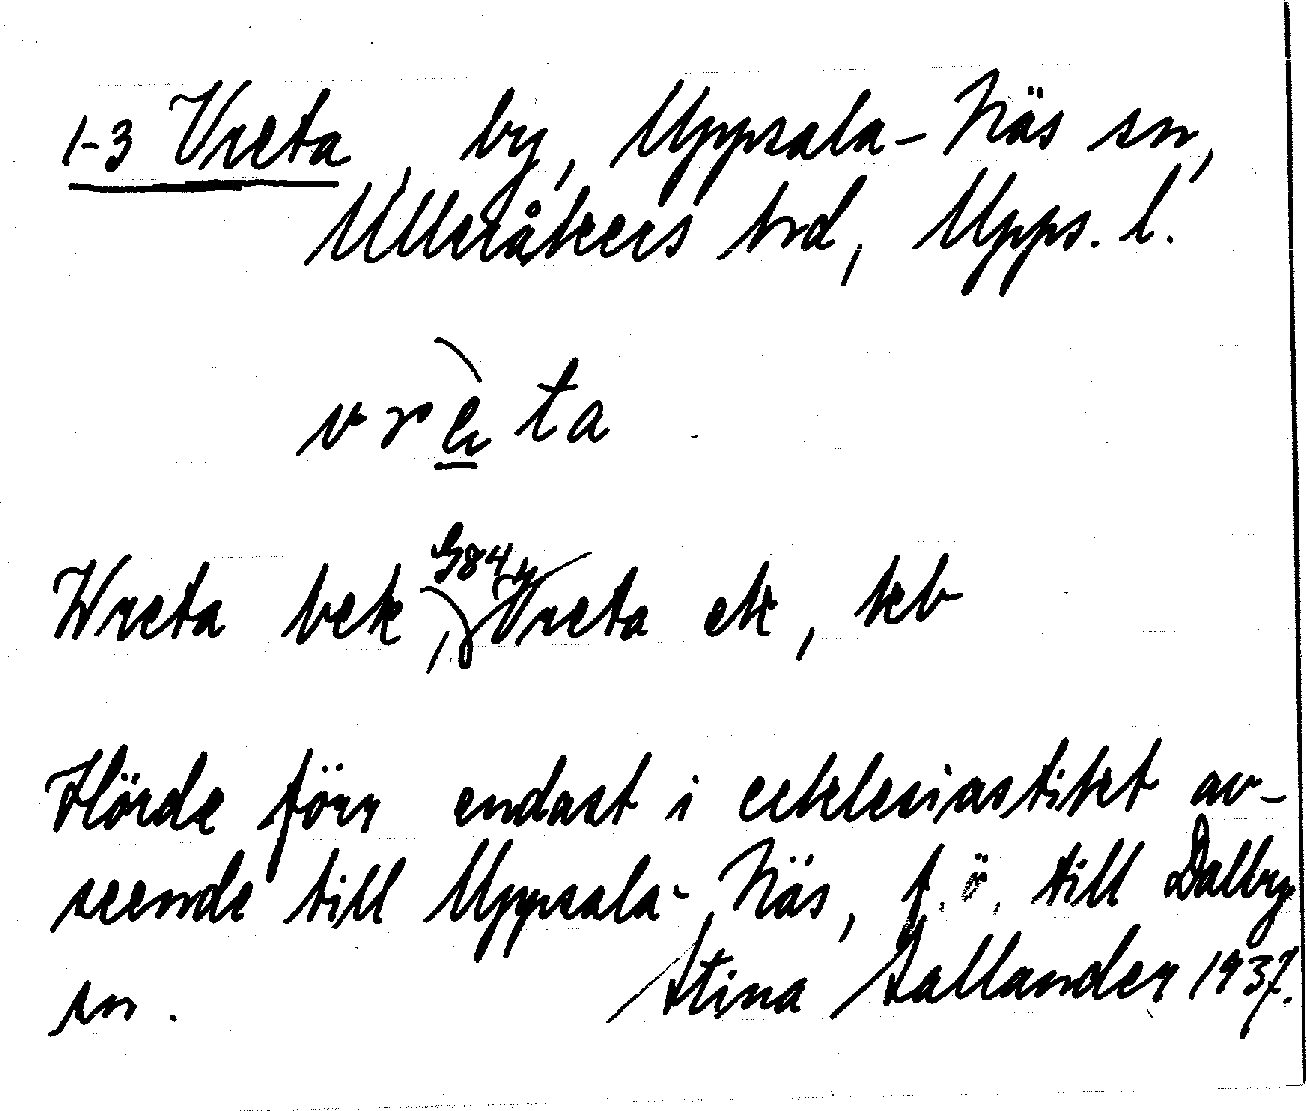 1-3 Vreta, by, Uppsala-Näs sn,
Ulleråkers hrd, Upps. l.
vrèta
Wreta bek G84, Vreta ek, kb
Hörde förr endast i ecklesiastikt av-
seende till Uppsala-Näs, f. ö. till Dalby
sn. Stina Sallander 1937.